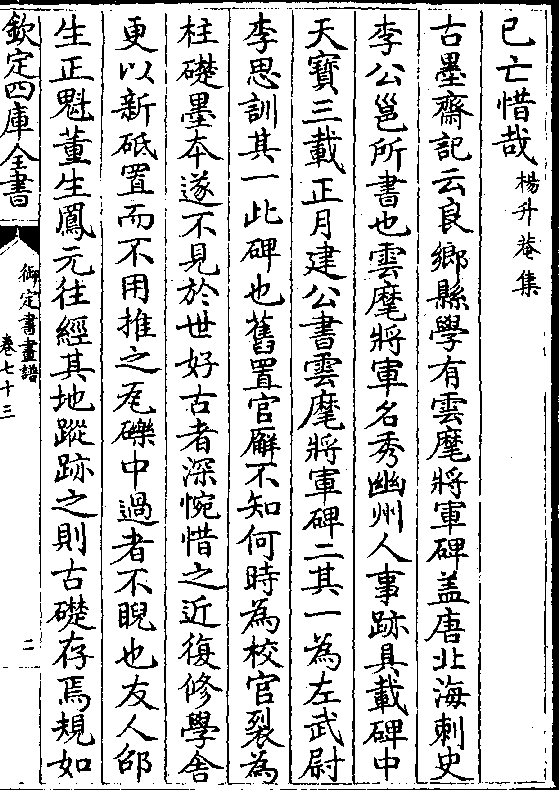 已亡惜哉楊升菴集
古墨齋記云良鄉縣學有雲麾將軍碑盖唐北海刺史
李公邕所書也雲麾將軍名秀幽州人事跡具載碑中
天寶三載正月建公書雲麾將軍碑二其一為左武尉
李思訓其一此碑也舊置官廨不知何時為校官裂為
柱礎墨本遂不見於世好古者深惋惜之近復修學舍
更以新砥置而不用推之瓦礫中過者不睨也友人邰
生正魁董生鳳元往經其地蹤跡之則古礎存焉規如
欽定四庫全書
御定書畫譜
卷七十三
二